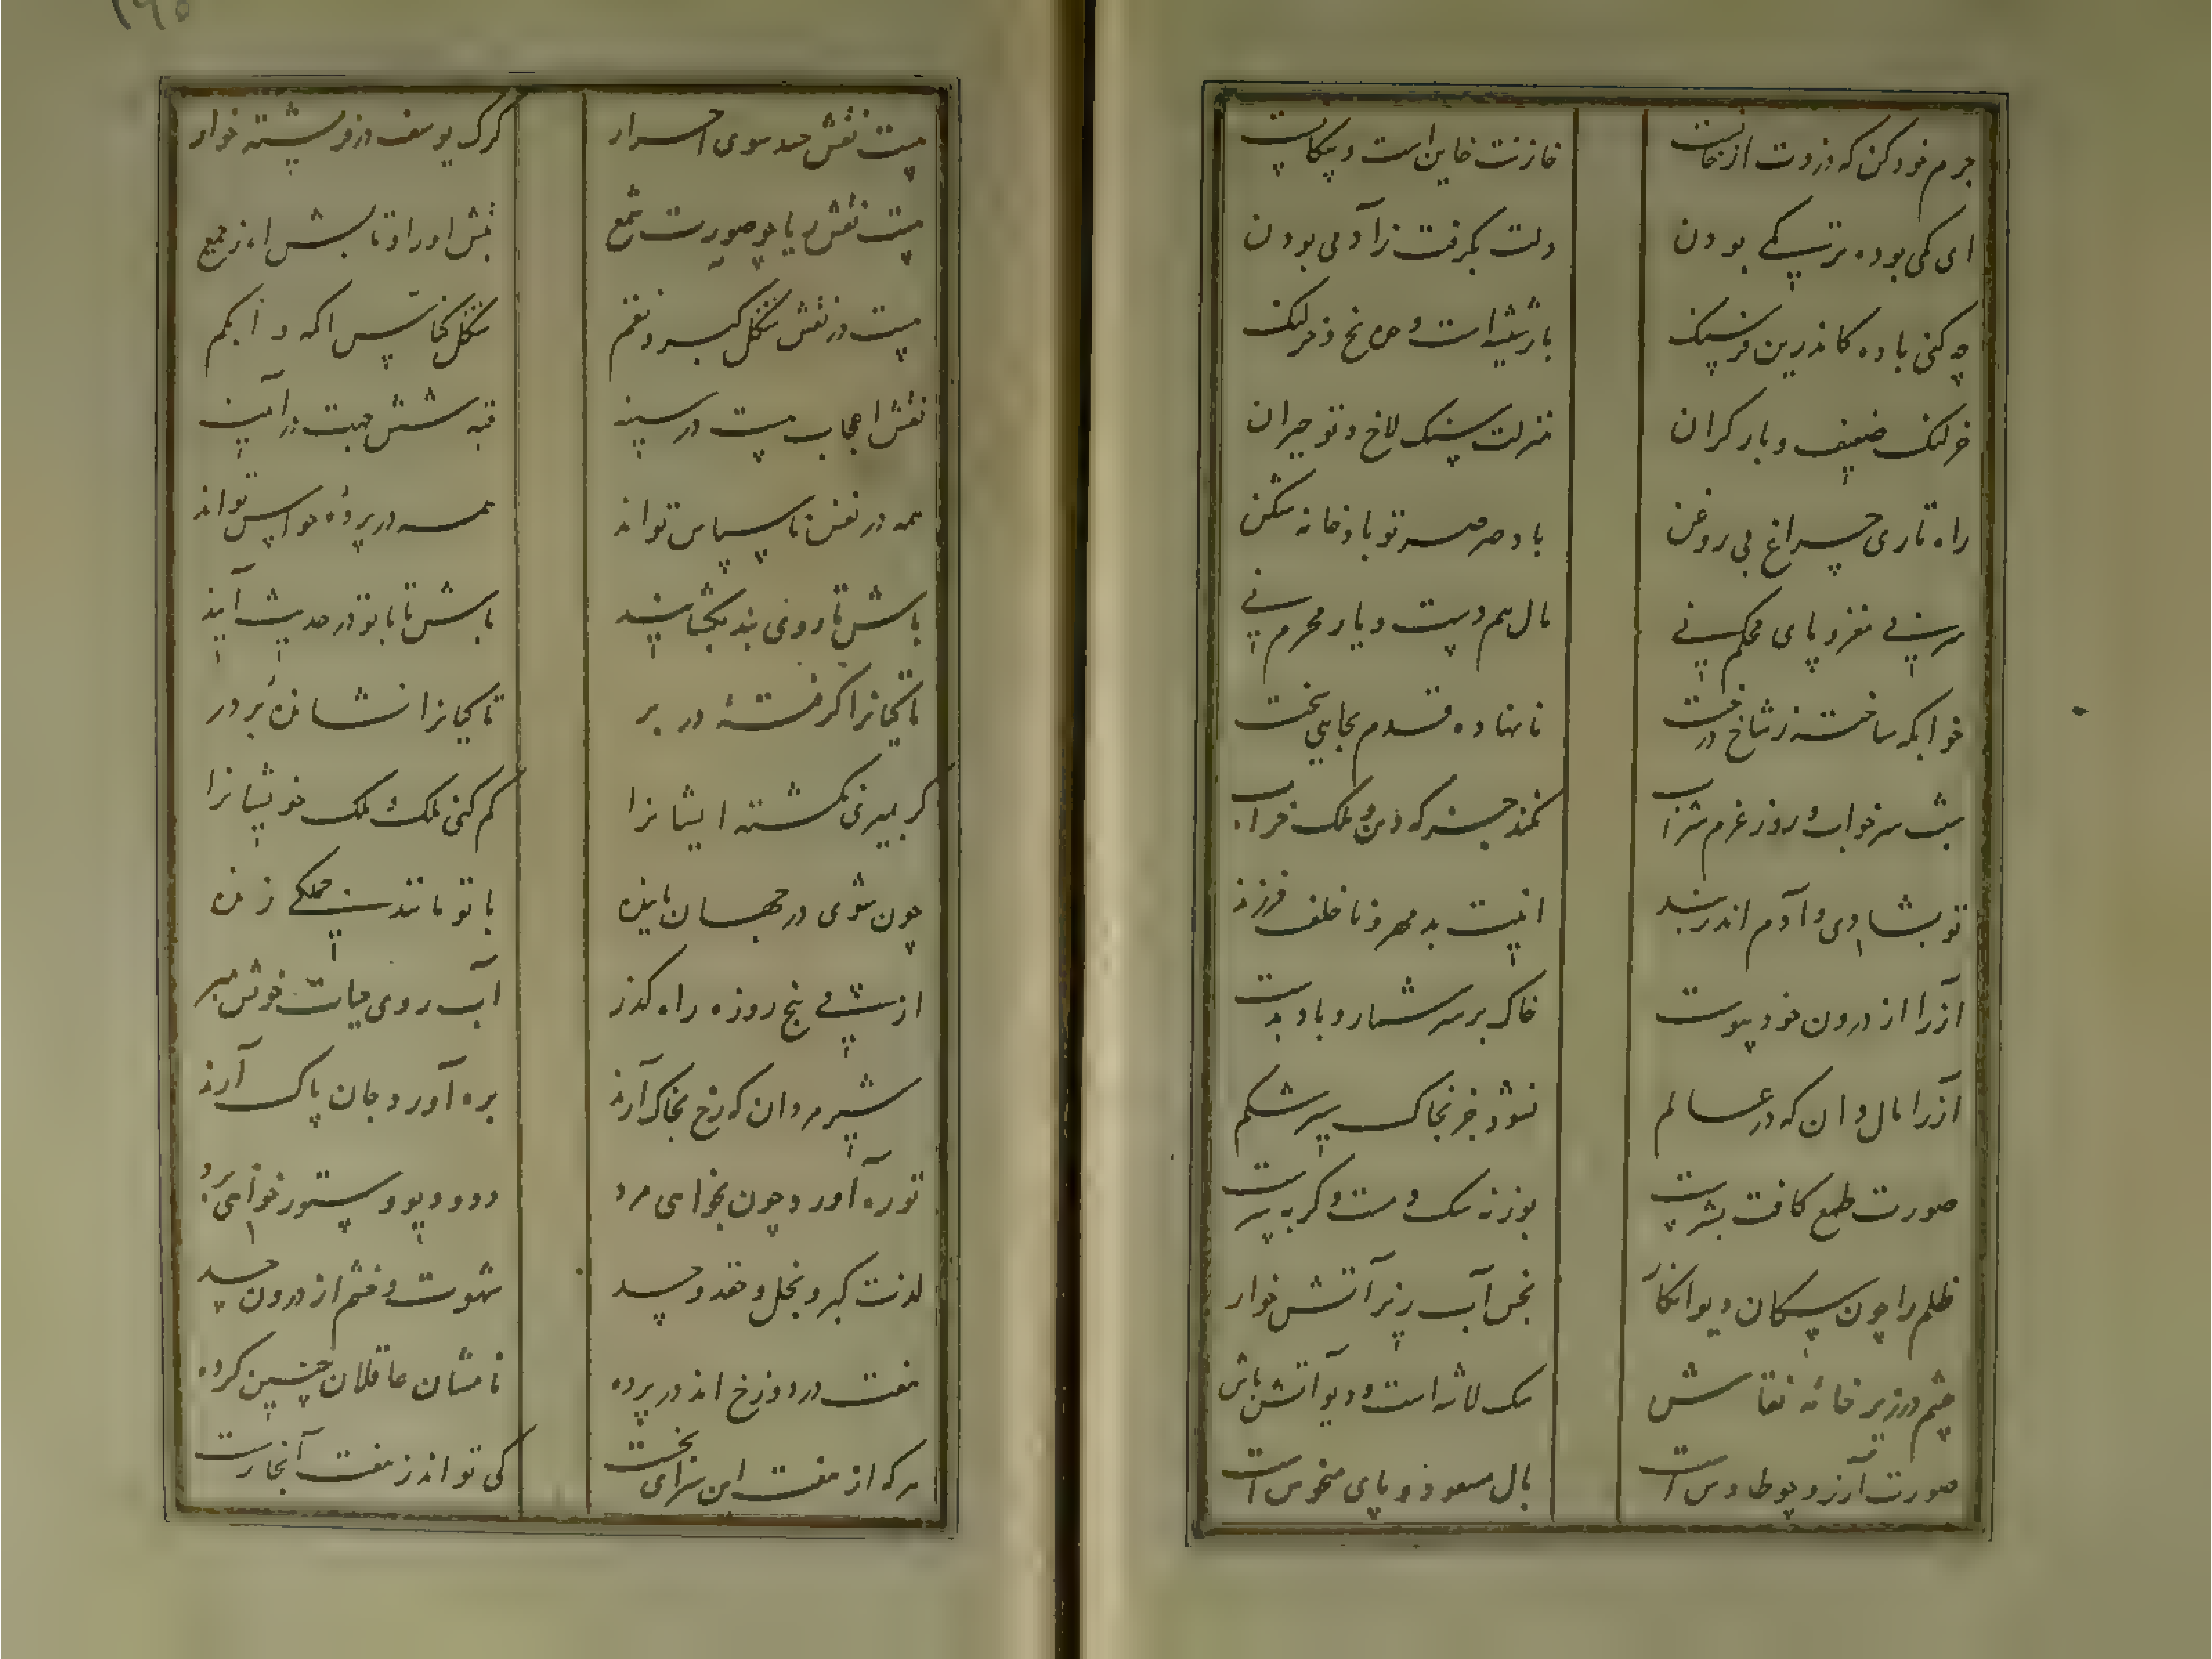 جرم خود کن که دزدت از خانست
خازنت خاین است و بیکانست
ای کمی بوده بر تنکی بودن
دلت بکرفت ز آدمی بودن
چه کنی باده کاندرین فرسنک
بار شیشه است و ره یخ و خر لنک
خر لنک ضعیف و بار کران
منزلت سنک لاخ و تو حیران
راه تاری چراغ بی روغن
باد صرصر تو باد خانه شکن
سر بی مغز و پای محکم نی
مال هم دست و یار محرم نی
خوابکه ساخته ز شاخ درخت
نانهاده قدم بجایی سخت
شب سر خواب و روز عزم شراب
نکند جز که دین و ملک خراب
تو بشادی و آدم اندر بند
اینت بد مهر و ناخلف فرزند
آز را از درون خود پیوست
خاک بر سر شمار و باد بدست
آز را مال دان که در عالم
نشود جز بخاک سیر شکم
صورت طمع کافت بشرست
بوزنه سک دست و کربه سرست
ظلم را چون سکان دیو انکار
نجس آب ریز آتش خوار
خشم در زیر خانه نقاش
سک لاشه است و دیو آتش پاش
صورت آرزو چو طاوس است
بال مسعود و پای منحوس است
هست نقش حسد سوی احرار
کرک یوسف در فرشته خوار
هست نقش ریا چو صورت شمع
نقش او را و تابش از جمع
هست در نقش شکل کبر و نقم
شکل کناس اکمه و ابکم
نقش اعجاب هست در سینه
قبه شش جهت در آیینه
همه در نفس ناسپاس تواند
همه در پرده حواس تواند
باش تا روی بند بکشایند
باش تا با تو در حدیث آیند
تا کجا نرا کرفته در بر
تا کیا نرا نشانده بر در
کر بمیری نکشته ایشانرا
کم کنی ملک و ملک خویشانرا
چون شوی در جهان پاینده
با تو مانند جملکی زنده
از پی پنج روزه راه کذر
آب روی حیات خوش مبر
شیر مردان که رخ بخاک آرند
بره آورد جان پاک آرند
تو ره آورد چون بخواهی مرد
دد و دیو و ستور خواهی برد
لذت کبر و بخل و حقد و حسد
شهوت و خشم از درون جسد
هفت در دوزخ اند در پرده
نامشان عاقلان چنین کرده
هر که از هفت این سرای نجست
کی تواند ز هفت آنجا رست